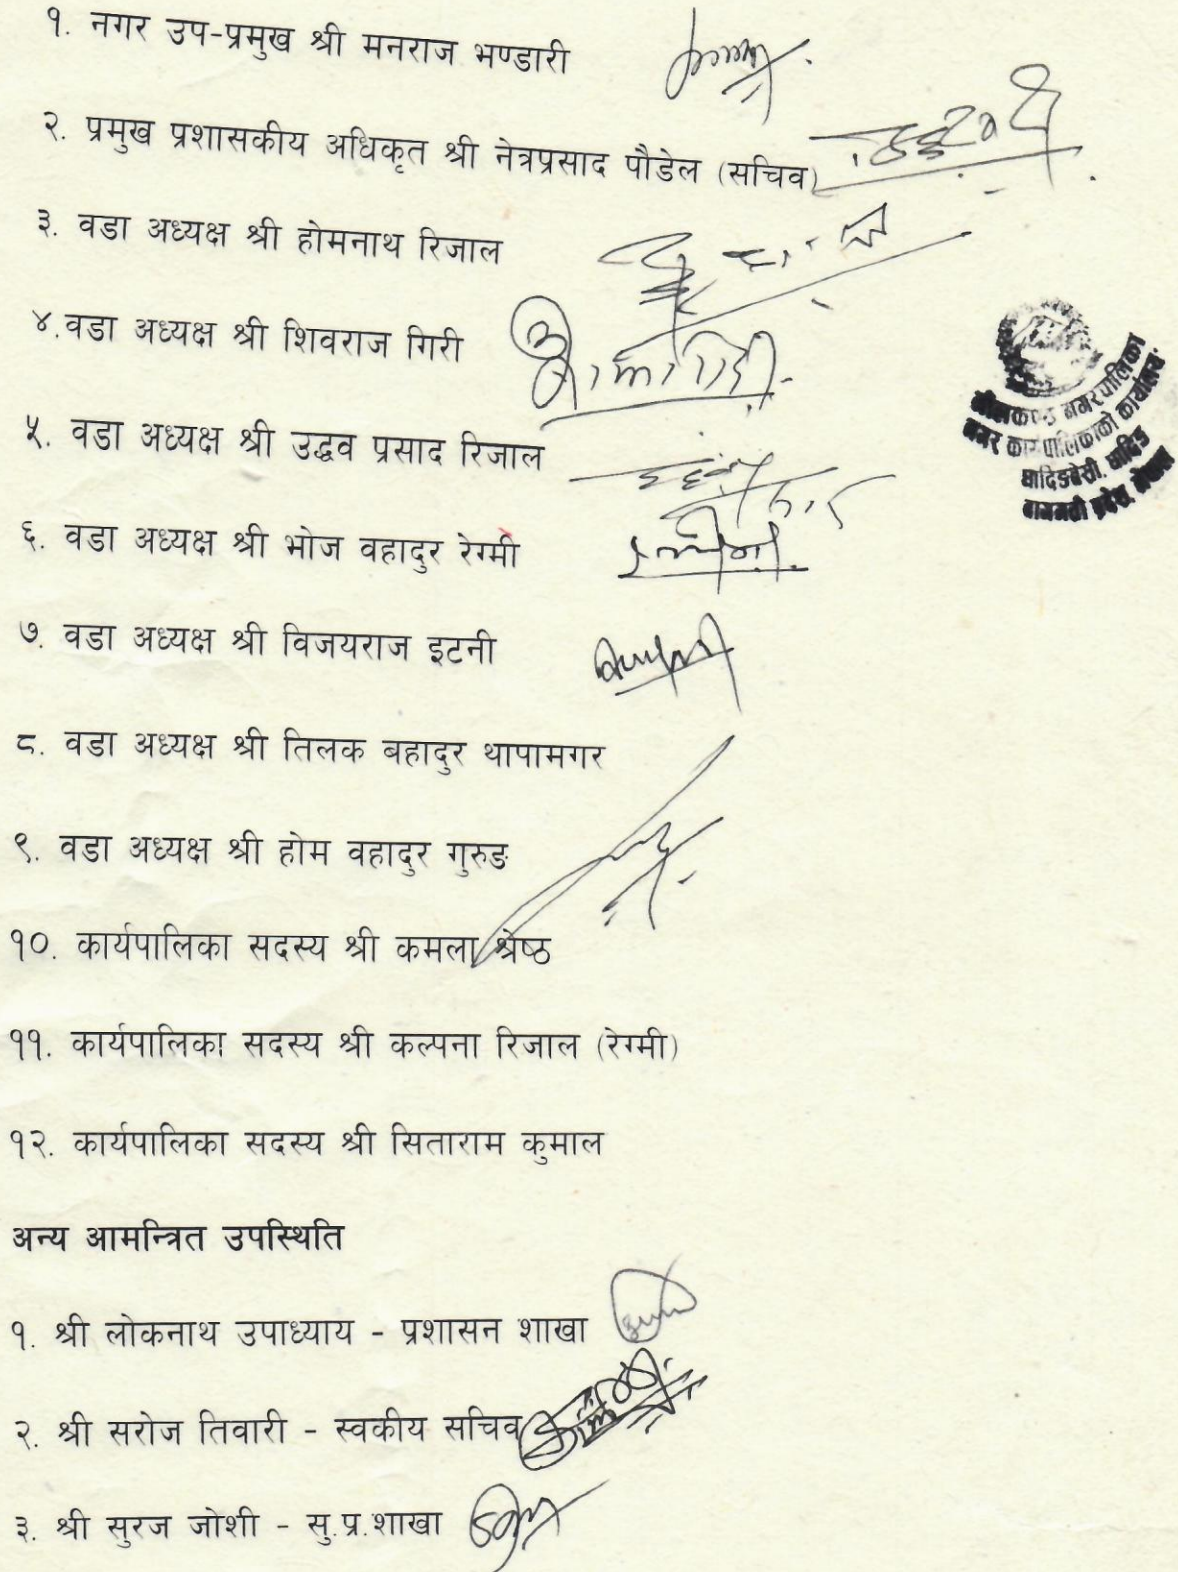 १. नगर उप-प्रमुख श्री मनराज भण्डारी
२. प्रमुख प्रशासकीय अधिकृत श्री नेत्रप्रसाद पौडेल (सचिव)
३. वडा अध्यक्ष श्री होमनाथ रिजाल
४.वडा अध्यक्ष श्री शिवराज गिरी
५. वडा अध्यक्ष श्री उद्धव प्रसाद रिजाल
६. वडा अध्यक्ष श्री भोज वहादुर रेग्मी
७. वडा अध्यक्ष श्री विजयराज इटनी
८. वडा अध्यक्ष श्री तिलक बहादुर थापामगर
९. वडा अध्यक्ष श्री होम वहादुर गुरुङ
१०. कार्यपालिका सदस्य श्री कमला श्रेष्ठ
११. कार्यपालिका सदस्य श्री कल्पना रिजाल (रेग्मी)
१२. कार्यपालिका सदस्य श्री सिताराम कुमाल
अन्य आमन्त्रित उपस्थिति
१. श्री लोकनाथ उपाध्याय - प्रशासन शाखा
२. श्री सरोज तिवारी - स्वकीय सचिव
३. श्री सुरज जोशी - सु.प्र.शाखा
नीलकण्ठ नगरपालिका
नगर कार्यपालिकाको कार्यालय
धादिङबेसी, धादिङ
बागमती प्रदेश, नेपाल